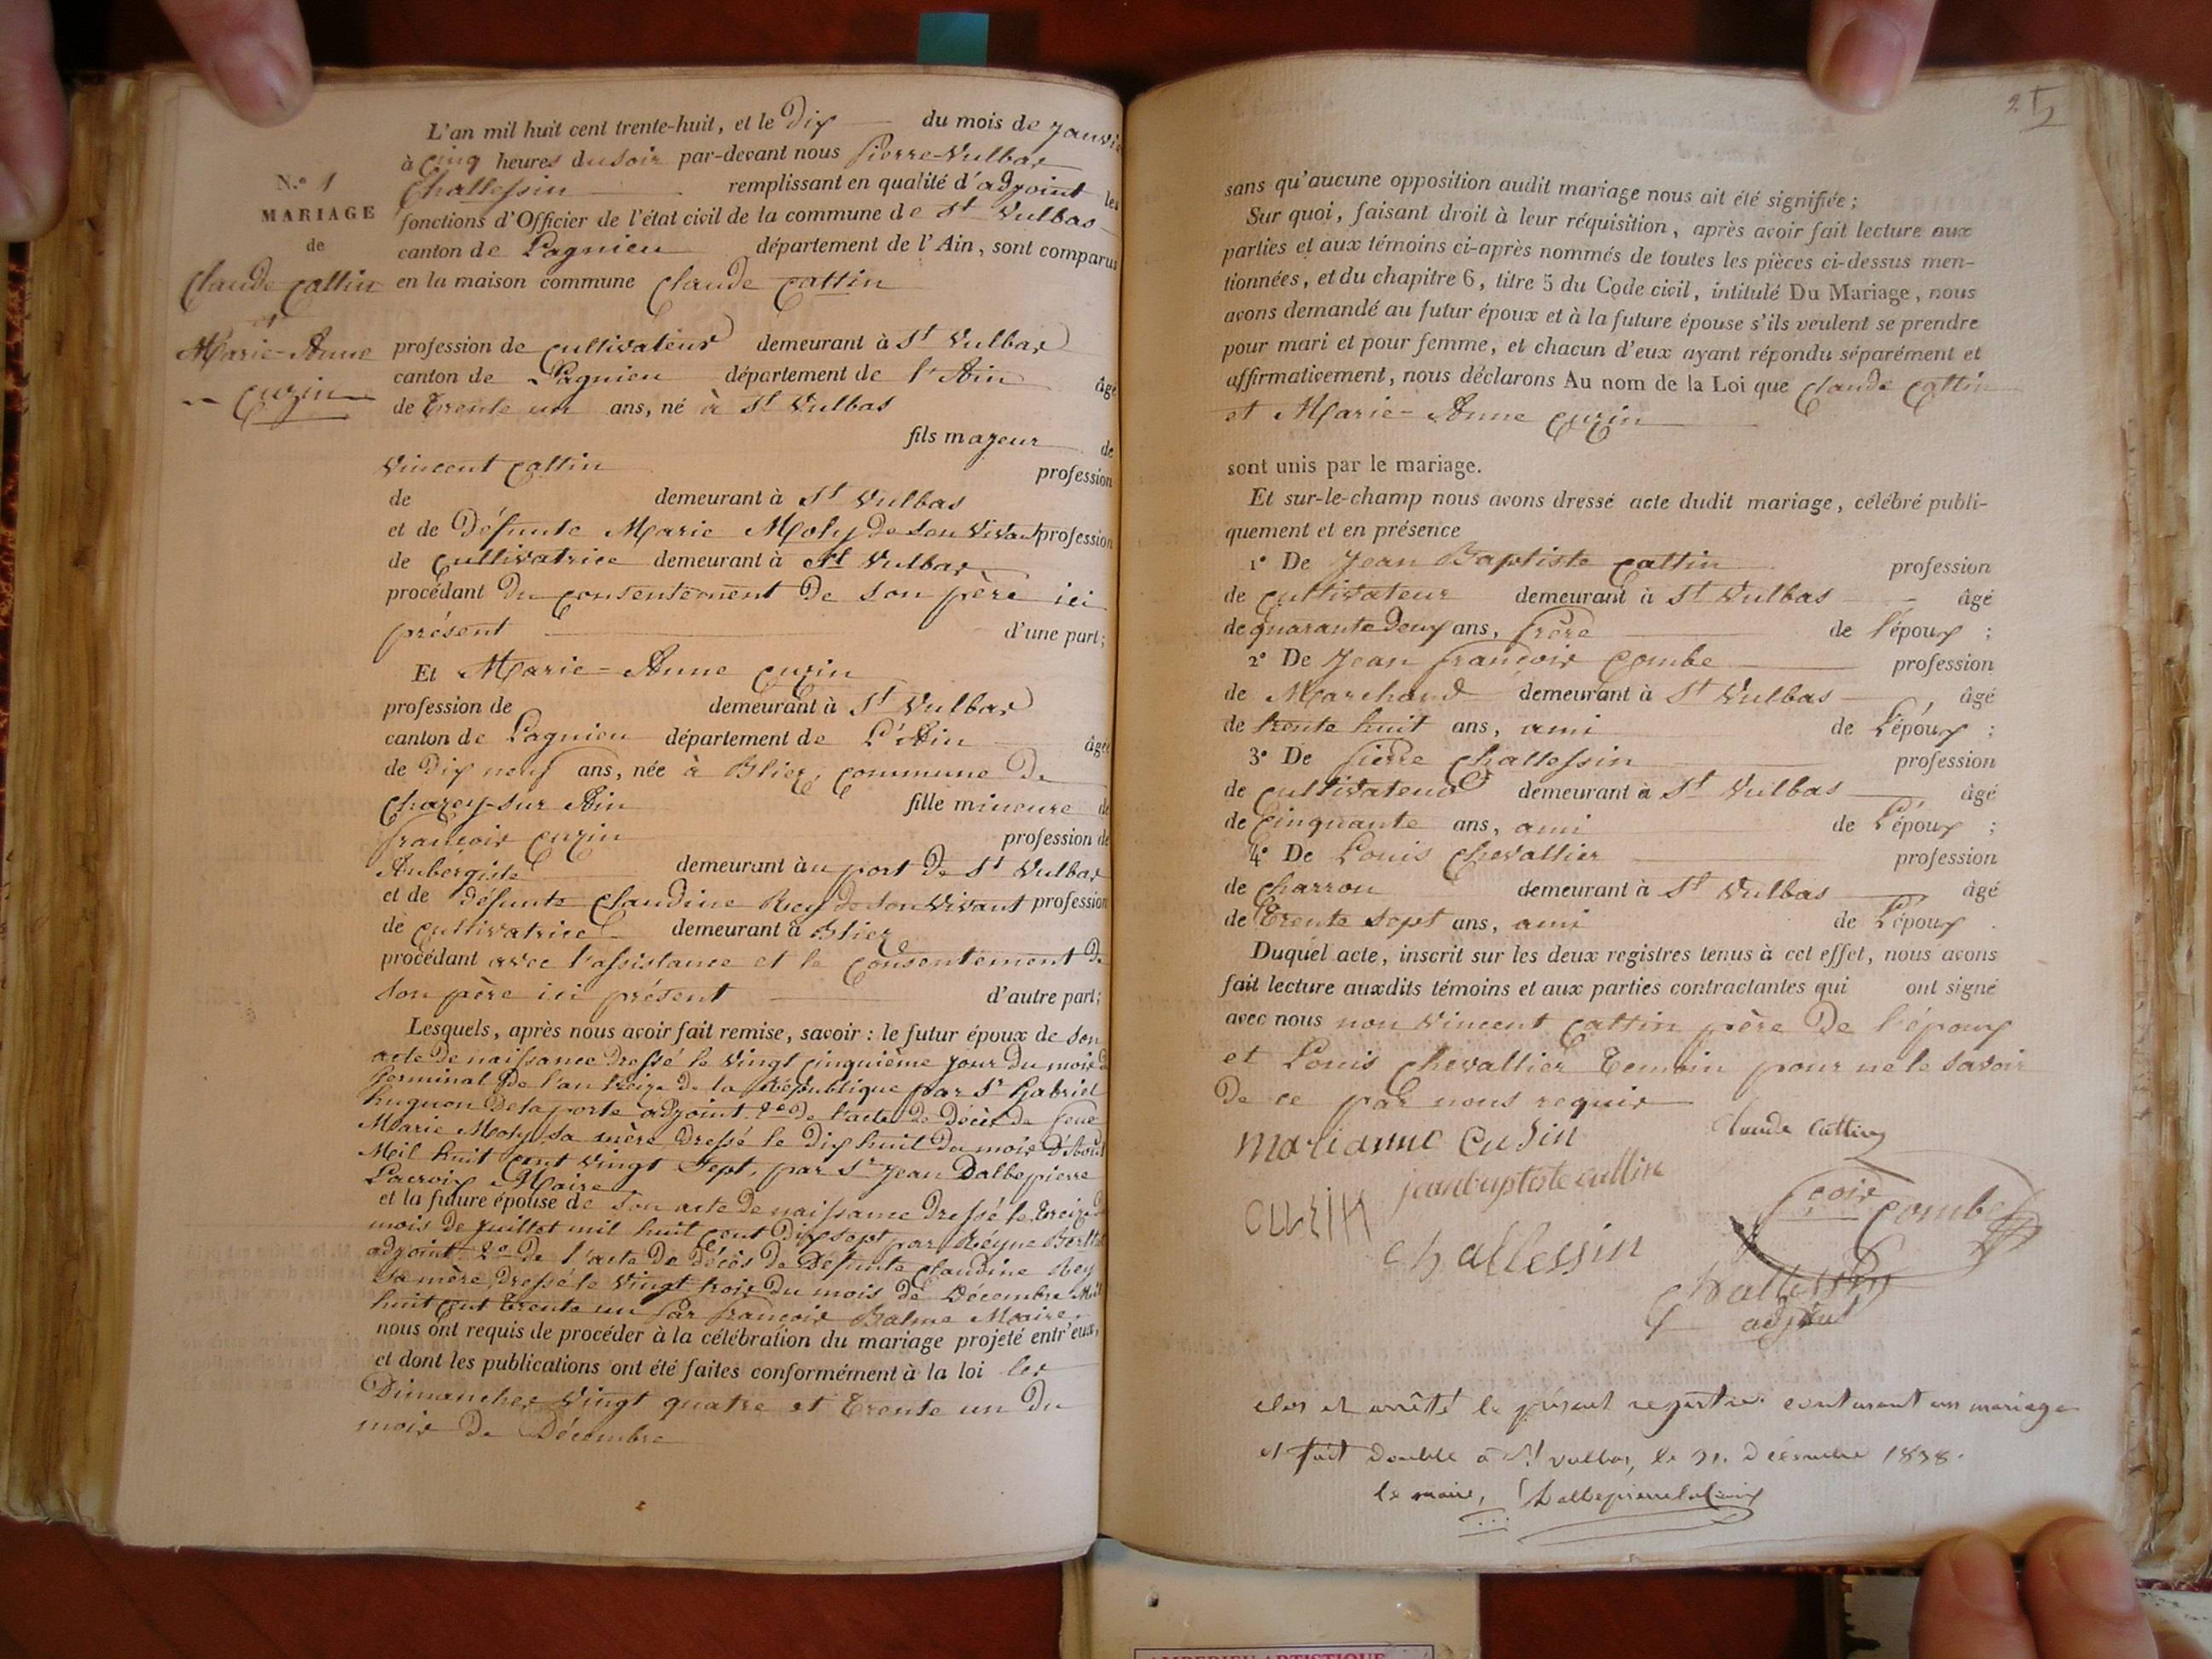 L'an mil huit cent trente-huit, et le Dix du mois de Janvier
à cinq heures du soir par-devant nous Pierre-Vulbas
Challessin remplissant en qualité d'adjoint les
fonctions d'Officier de l'état civil de la commune de St Vulbas
canton de Lagnieu département de l'Ain, sont comparus
en la maison commune Claude Cattin
N.º 1
MARIAGE
de
Claude Cattin
et
Marie-Anne
Cuzin
profession de cultivateur demeurant à St Vulbas
canton de Lagnieu département de l'Ain âgé
de trente un ans, né à St Vulbas
fils majeur de
Vincent Cattin profession
de demeurant à St Vulbas
et de Défunte Marie Moly de son vivant profession
de cultivatrice demeurant à St Vulbas
procédant du consentement de son père ici
présent d'une part;
Et Marie-Anne Cuzin
profession de demeurant à St Vulbas
canton de Lagnieu département de L'Ain âgée
de Dix neuf ans, née à Blier, commune de
Chazey-sur Ain fille mineure de
françois Cuzin profession de
Aubergiste demeurant au port de St Vulbas
et de défunte Claudine Rey de son vivant profession
de cultivatrice demeurant à Blier
procédant avec l'assistance et le consentement de
son père ici présent d'autre part;
Lesquels, après nous avoir fait remise, savoir : le futur époux de son
acte de naissance dressé le vingt cinquième jour du mois de
Germinal de l'an treize de la République par Sr Gabriel
hugnon Delaporte adjoint 2º de l'acte de décès de feue
Marie Moly sa mère dressé le dix huit du mois d'Aout
Mil huit cent vingt sept, par Sr Jean Dalbepierre
Lacroix Maire
et la future épouse de son acte de naissance dressé le treize du
mois de juillet mil huit cent Dix sept par Réyne
adjoint 2º de l'acte de décès de Défunte Claudine Rey
sa mère dressé le vingt trois du mois de Décembre Mil
huit cent trente un par françois Balme Maire
nous ont requis de procéder à la célébration du mariage projeté entr'eux,
et dont les publications ont été faites conformément à la loi les
Dimanches vingt quatre et trente un du
mois de Décembre
sans qu'aucune opposition audit mariage nous ait été signifiée ;
Sur quoi, faisant droit à leur réquisition, après avoir fait lecture aux
parties et aux témoins ci-après nommés de toutes les pièces ci-dessus men-
tionnées, et du chapitre 6, titre 5 du Code civil, intitulé Du Mariage, nous
avons demandé au futur époux et à la future épouse s'ils veulent se prendre
pour mari et pour femme, et chacun d'eux ayant répondu séparément et
affirmativement, nous déclarons Au nom de la Loi que Claude Cattin
et Marie-Anne Cuzin
sont unis par le mariage.
Et sur-le-champ nous avons dressé acte dudit mariage, célébré publi-
quement et en présence
1º De Jean Baptiste Cattin profession
de cultivateur demeurant à St Vulbas âgé
de quarante deux ans, frère de l'époux ;
2º De Jean françois Combe profession
de Marchand demeurant à St Vulbas âgé
de trente huit ans, ami de L'époux ;
3º De Pierre Challessin profession
de cultivateur demeurant à St Vulbas âgé
de Cinquante ans, ami de L'époux ;
4º De Louis Chevallier profession
de Charron demeurant à St Vulbas âgé
de trente sept ans, ami de L'époux .
Duquel acte, inscrit sur les deux registres tenus à cet effet, nous avons
fait lecture auxdits témoins et aux parties contractantes qui ont signé
avec nous non Vincent Cattin père de l'époux
et Louis Chevallier temoin pour ne le savoir
De ce par nous requis
marianne Cusin Claude Cattin
jeanbaptiste cattin
curin fçois Combe
challessin
Challessin
adjoint
clos et arrêté le présent registre contenant un mariage
et fait double à St vulbas, le 31. décembre 1838.
le maire, Dalbepierrelacroix